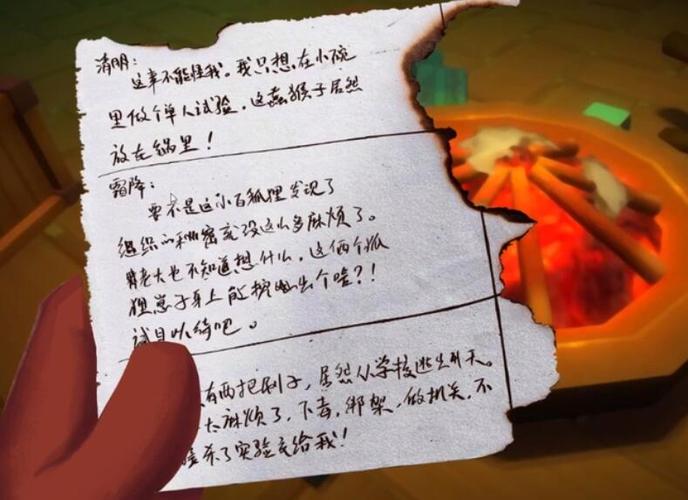 清明：
这事不能怪我。我只想在小碗
里做个单人试验，这蠢猴子居然
放在锅里！
霜降：
要不是这小白狐狸发现了
组织的秘密就没这么多麻烦了。
老大也不知道想什么，这俩个狐
狸崽子身上能挖出个啥？！
试目以待吧。
有两把刷子，居然从学校逃出升天。
太麻烦了，下毒，绑架，做机关，不
杀了实验交给我！